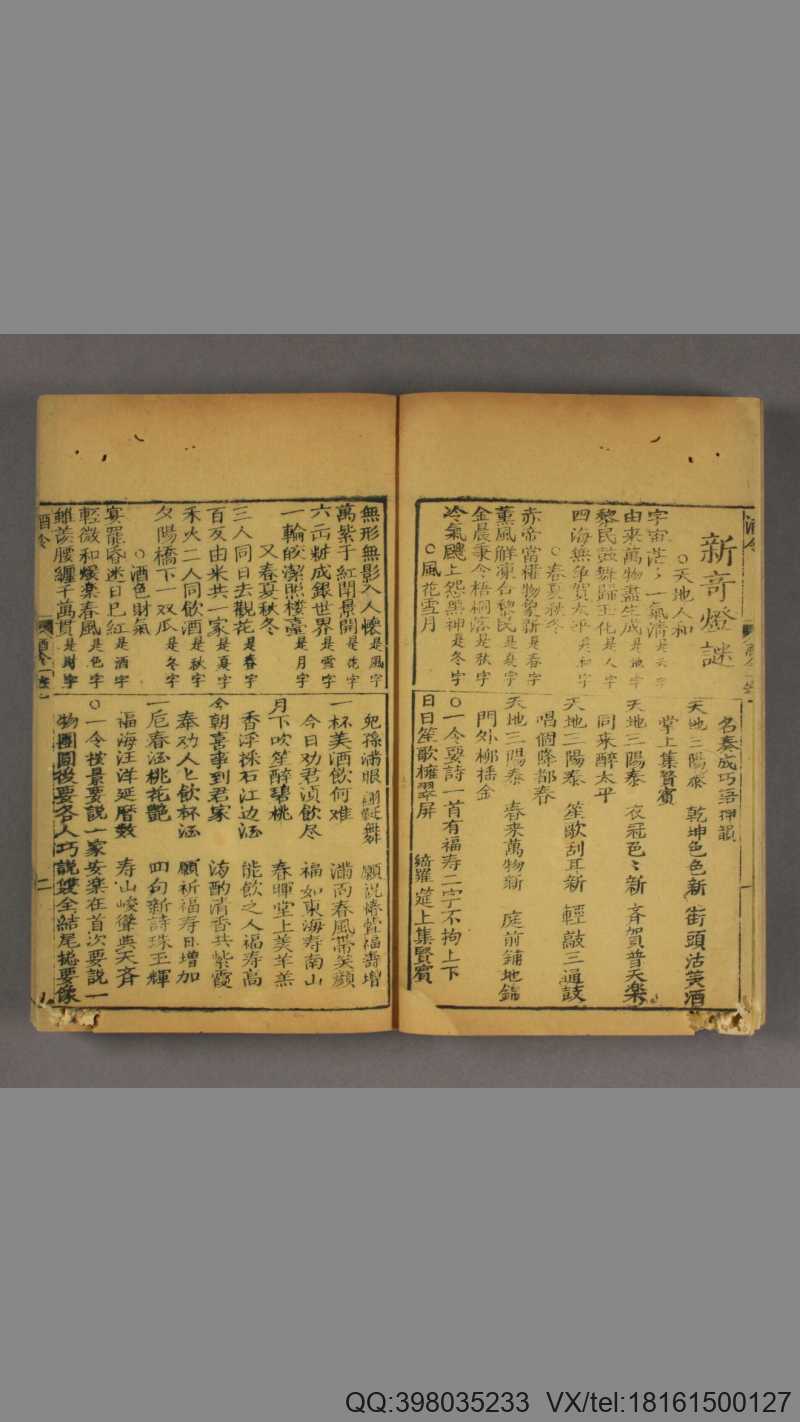 新奇燈謎
○天地人和
宇宙茫々一氣清是天字
由来萬物盡生成是地字
黎民鼓舞歸王化是人字
四海無爭賀太平是和字
○春夏秋冬
赤帝當權物象新是春字
薰風解凍台黎民是夏字
金晨秉令梧桐落是秋字
冷氣颼上怨黑神是冬字
○風花雪月
名奏成巧語押韻
天地三陽泰 乾坤色色新 街頭沽美酒
堂上集賢賓
天地三陽泰 衣冠色〻新 斉賀普天楽
同来醉太平
天地三陽泰 笙歌刮耳新 輕敲三通鼓
唱個降都春
天地三陽泰 春来萬物新 庭前鋪地錦
門外柳揺金
○一令要詩一首有福寿二字不拘上下
日日笙歌擁翠屏 綺羅筵上集賢賓
無形無影入人懐是風字
萬紫千紅閗景開是花字
六出粧成銀世界是雪字
一輪皎潔照樓臺是月字
又春夏秋冬
三人同日去觀花是春字
百友由来共一家是夏字
禾火二人同飲酒是秋字
夕陽橋下一双瓜是冬字
○酒色財氣
宴罷昏迷日已紅是酒字
輕微和煖楽春風是色字
雖羨腰纏千萬貫是財字
児孫満眼 願祝椿萱福壽増
一杯美酒飲何难 满面春風帯笑顔
今日劝君湏飲尽 福如東海寿南山
月下吹笙醉碧桃 春暉堂上美羊羔
香浮採石江边酒 能飲之人福寿高
今朝喜事到君家 满酌清香共紫霞
奉劝人匕飲杯酒 願祈福寿日増加
一卮春酒桃花艷 四句新詩珠玉輝
福海汪洋延暦数 寿山峻聳與天斉
○一令楼景要說一家安楽在首次要說一
物團圓後要各人巧說雙全結尾摠要像